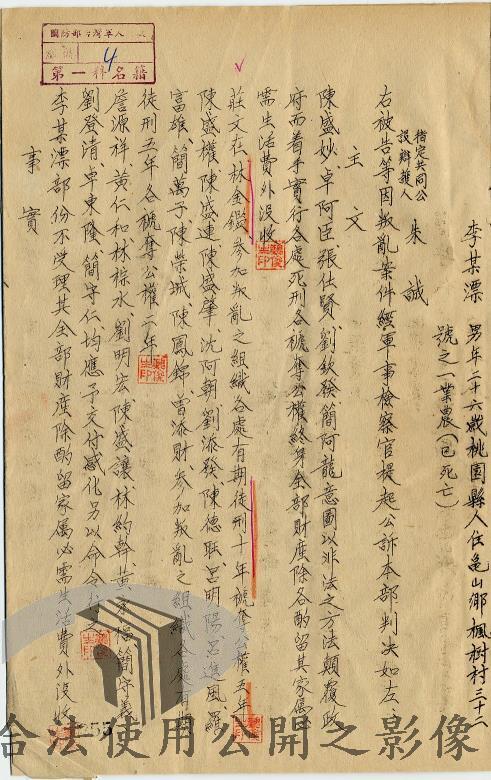 李某漂 男年二十六歲桃園縣人住龜山鄉楓樹村三十二
號之一業農(已死亡)
指定共同公
設辯護人 朱誠
右被告等因叛亂案件經軍事檢察官提起公訴本部判決如左
主文
陳盛妙、卓阿臣張仕賢、劉欽發、簡阿龍意圖以非法之方法顛覆政
府而着手實行各處死刑各褫奪公權終身全部財產除各酌留其家屬必
需生活費外沒收
莊文在、林金鑑參加叛亂之組織各處有期徒刑十年褫奪公權五年
陳盛權、陳盛連、陳盛肇、沈阿朝劉添發、陳德旺呂明陽呂進風羅
富雄、簡萬子、陳榮城、陳鳳錦曾添財參加叛亂之組織各處有期
徒刑五年各褫奪公權二年
詹源祥黃仁和林標水、劉明宏陳盛讓林約幹、黃 福簡守義
劉登清、卓東隆、簡守仁均應予交付感化另以命令
李某漂部份不受理其全部財產除酌留家屬必需生活費外沒收
事實
國防部台灣軍人
4
第一科名籍
合法使用公開之影像